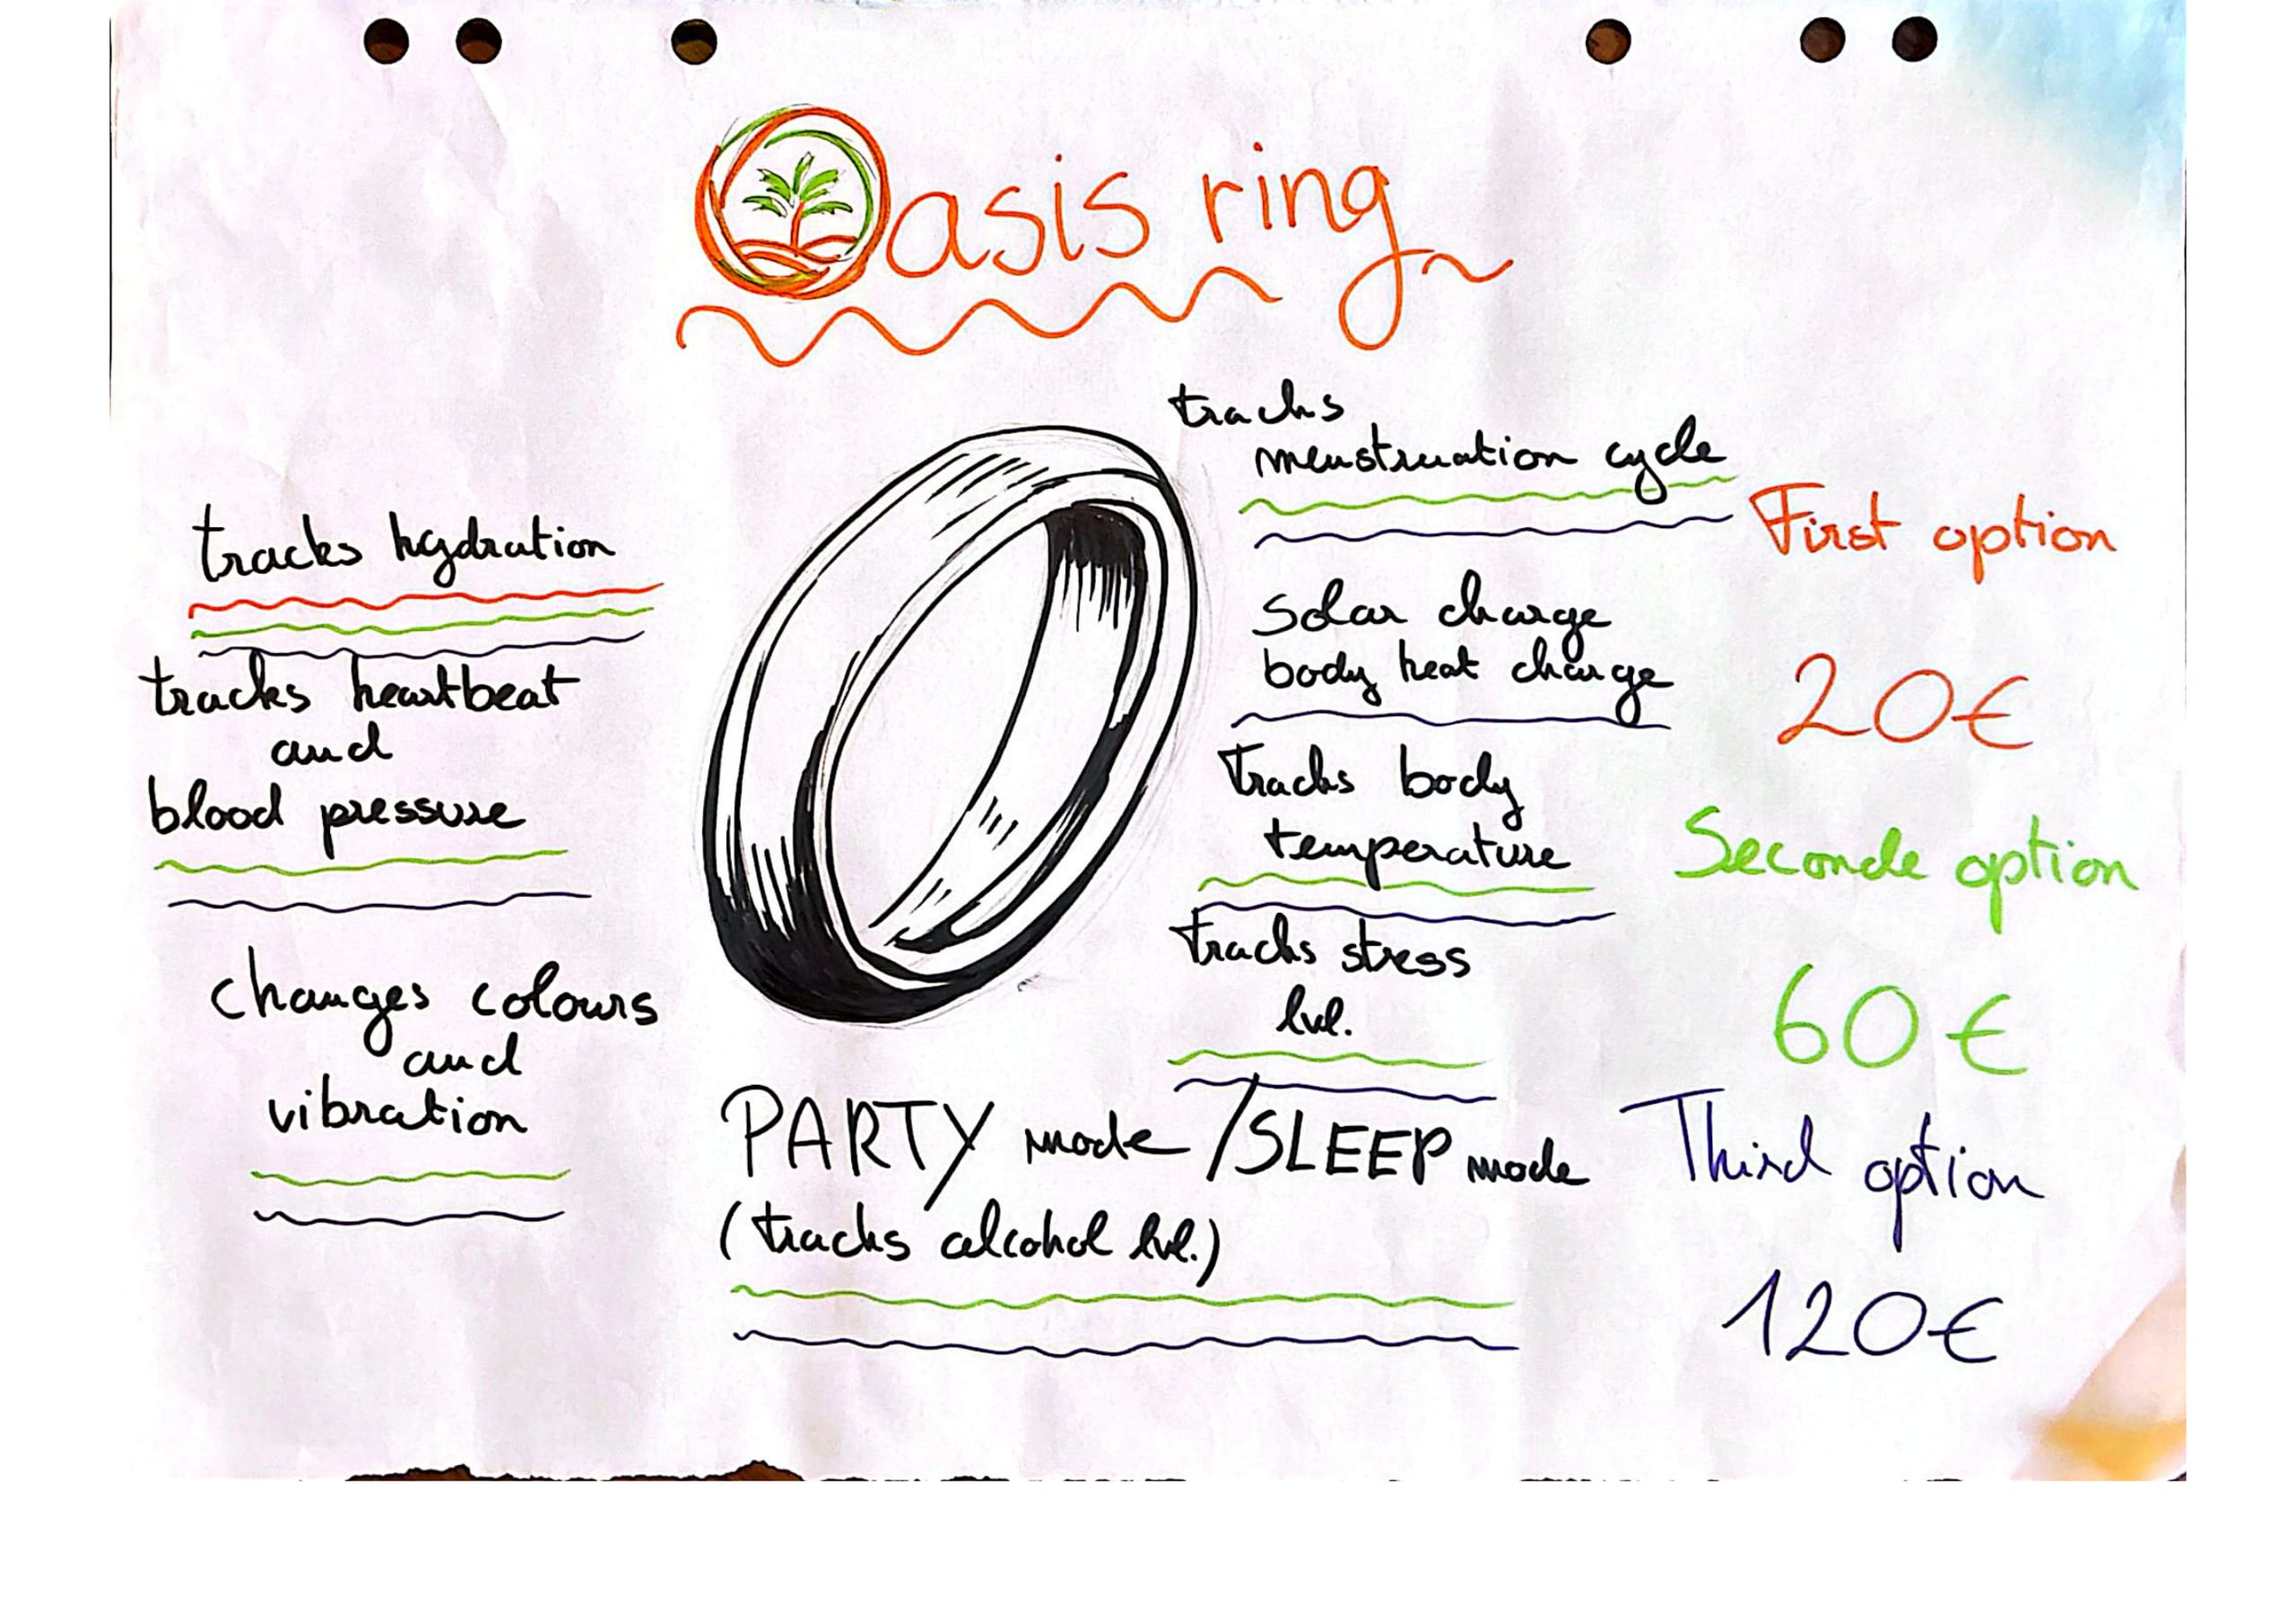 Oasis ring
tracks hydration
tracks heartbeat
and
blood pressure
changes colours
and
vibration
tracks
menstruation cycle
solar charge
body heat charge
tracks body
temperature
tracks stress
lvl.
PARTY mode / SLEEP mode
(tracks alcohol lvl.)
First option
20€
Seconde option
60€
Third option
120€